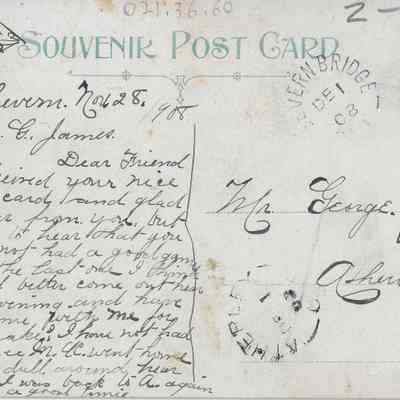 021.36.60
2-
SOUVENIR POST CARD
evern. Nov 28, 1908
. G. James.
Dear Friend
eived your nice
card, and glad
ar from you, but
to hear that you
not had a good game
the last one I
better come out hear
vening and hope
me with me for
I have not had
ce M. C. went home
dull around hear
I was back to A again
a good time
SEVERN BRIDGE
DE 1
08
Mr George.
Asher
ATHERLEY
DE 1
08